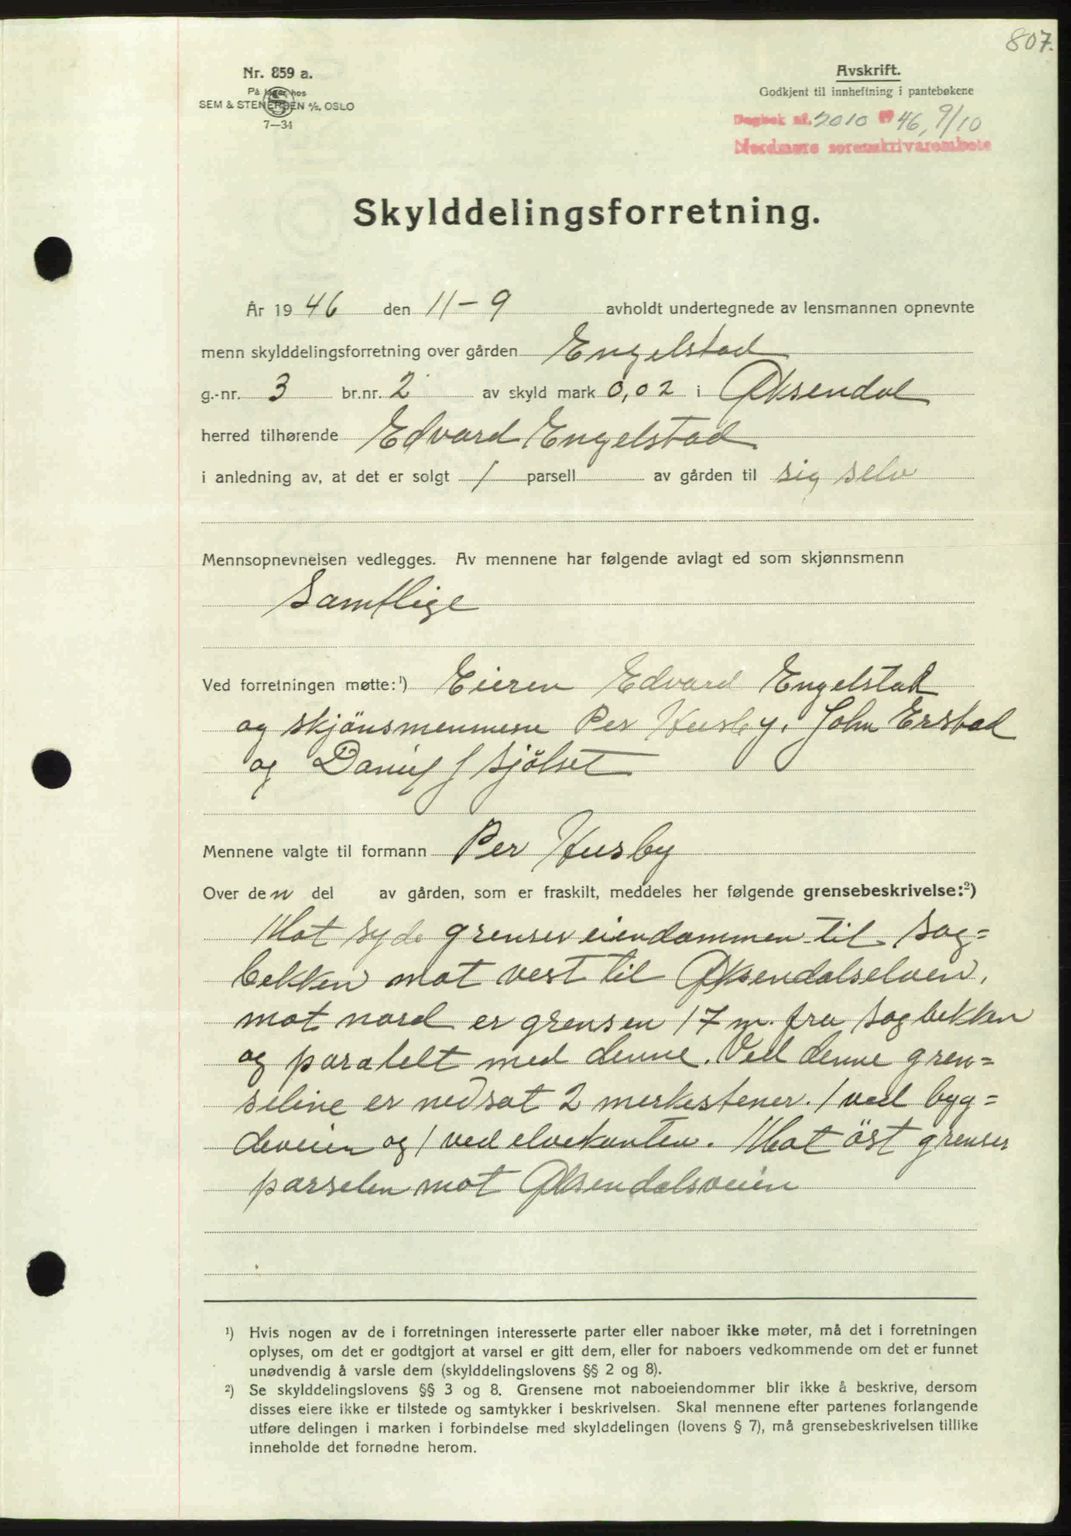 807.
Nr. 859 a.
På lager hos
SEM & STENERSEN A/S, OSLO
7—34
Avskrift.
Godkjent til innheftning i pantebøkene
Dagbok nr. 2010 19 46, 9/10
Nordmøre sorenskrivarembete
Skylddelingsforretning.
År 1946 den 11-9 avholdt undertegnede av lensmannen opnevnte
menn skylddelingsforretning over gården Engelstad
g.-nr. 3 br.nr. 2 av skyld mark 0,02 i Øksendal
herred tilhørende Edvard Engelstad
i anledning av, at det er solgt 1 parsell av gården til sig selv
Mennsopnevnelsen vedlegges. Av mennene har følgende avlagt ed som skjønnsmenn
Samtlige
Ved forretningen møtte:¹) Eieren Edvard Engelstad
og skjönsmennene Per Husby, John Erstad
og Daniel J Sjölset
Mennene valgte til formann Per Husby
Over den del av gården, som er fraskilt, meddeles her følgende grensebeskrivelse:²)
Mot syde grenser eiendommen til Sag=
bekken mot vest til Øksendalselven,
mot nord er grensen 17 m. fra sagbekken
og paralelt med denne. Ved denne gren=
seline er nedsat 2 merkestener. 1 ved byg=
deveien og 1 ved elvekanten. Mot öst grenser
parselen mot Øksendalsveien
¹) Hvis nogen av de i forretningen interesserte parter eller naboer ikke møter, må det i forretningen
oplyses, om det er godtgjort at varsel er gitt dem, eller for naboers vedkommende om det er funnet
unødvendig å varsle dem (skylddelingslovens §§ 2 og 8).
²) Se skylddelingslovens §§ 3 og 8. Grensene mot naboeiendommer blir ikke å beskrive, dersom
disses eiere ikke er tilstede og samtykker i beskrivelsen. Skal mennene efter partenes forlangende
utføre delingen i marken i forbindelse med skylddelingen (lovens § 7), må grensebeskrivelsen tillike
inneholde det fornødne herom.